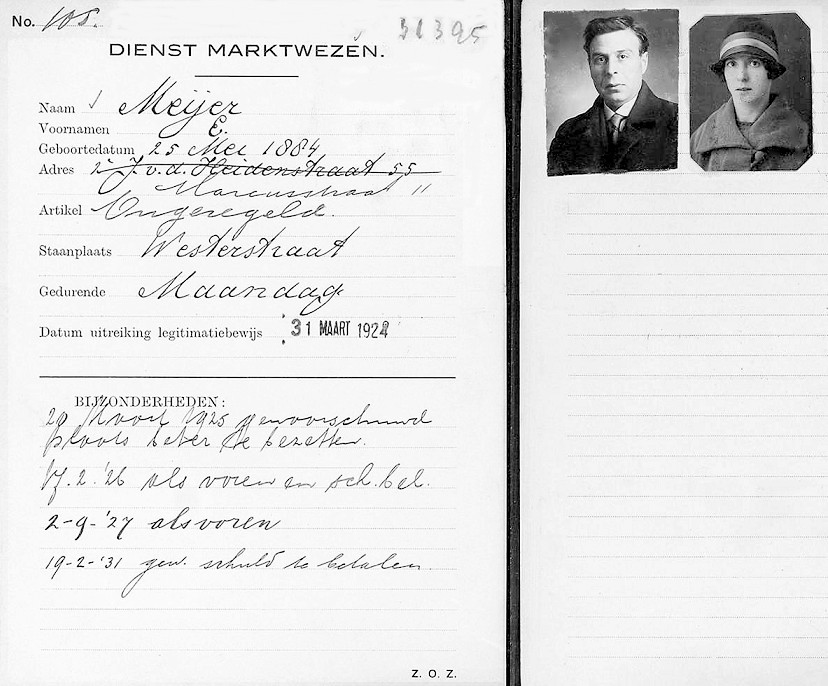 No. 105.
31395
DIENST MARKTWEZEN.
Naam Meijer
Voornamen E.
Geboortedatum 25 Mei 1884
Adres 2e J. v. d. Heidenstraat 55
Marcusstraat 11
Artikel Ongeregeld.
Staanplaats Westerstraat
Gedurende Maandag
Datum uitreiking legitimatiebewijs 31 MAART 1924
BIJZONDERHEDEN:
20 Maart 1925 gewaarschuwd
plaats beter te bezetten.
17.2.'26 als voren en sch. bel.
2-9-'27 als voren
19-2-'31 gew. schuld te betalen.
Z. O. Z.